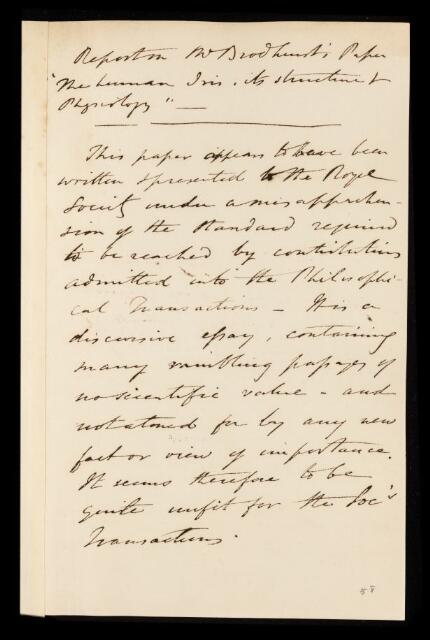 Report on Mr Brodhurst's Paper
"The human Iris, its structure &
Physiology" —
This paper appears to have been
written & presented to the Royal
Society under a misapprehen-
sion of the standard required
to be reached by contributions
admitted into the Philosophi-
cal Transactions – It is a
discursive essay, containing
many rambling passages of
no scientific value – and
not atoned for by any new
fact or view of importance.
It seems therefore to be
quite unfit for the Soc's
Transactions.
58